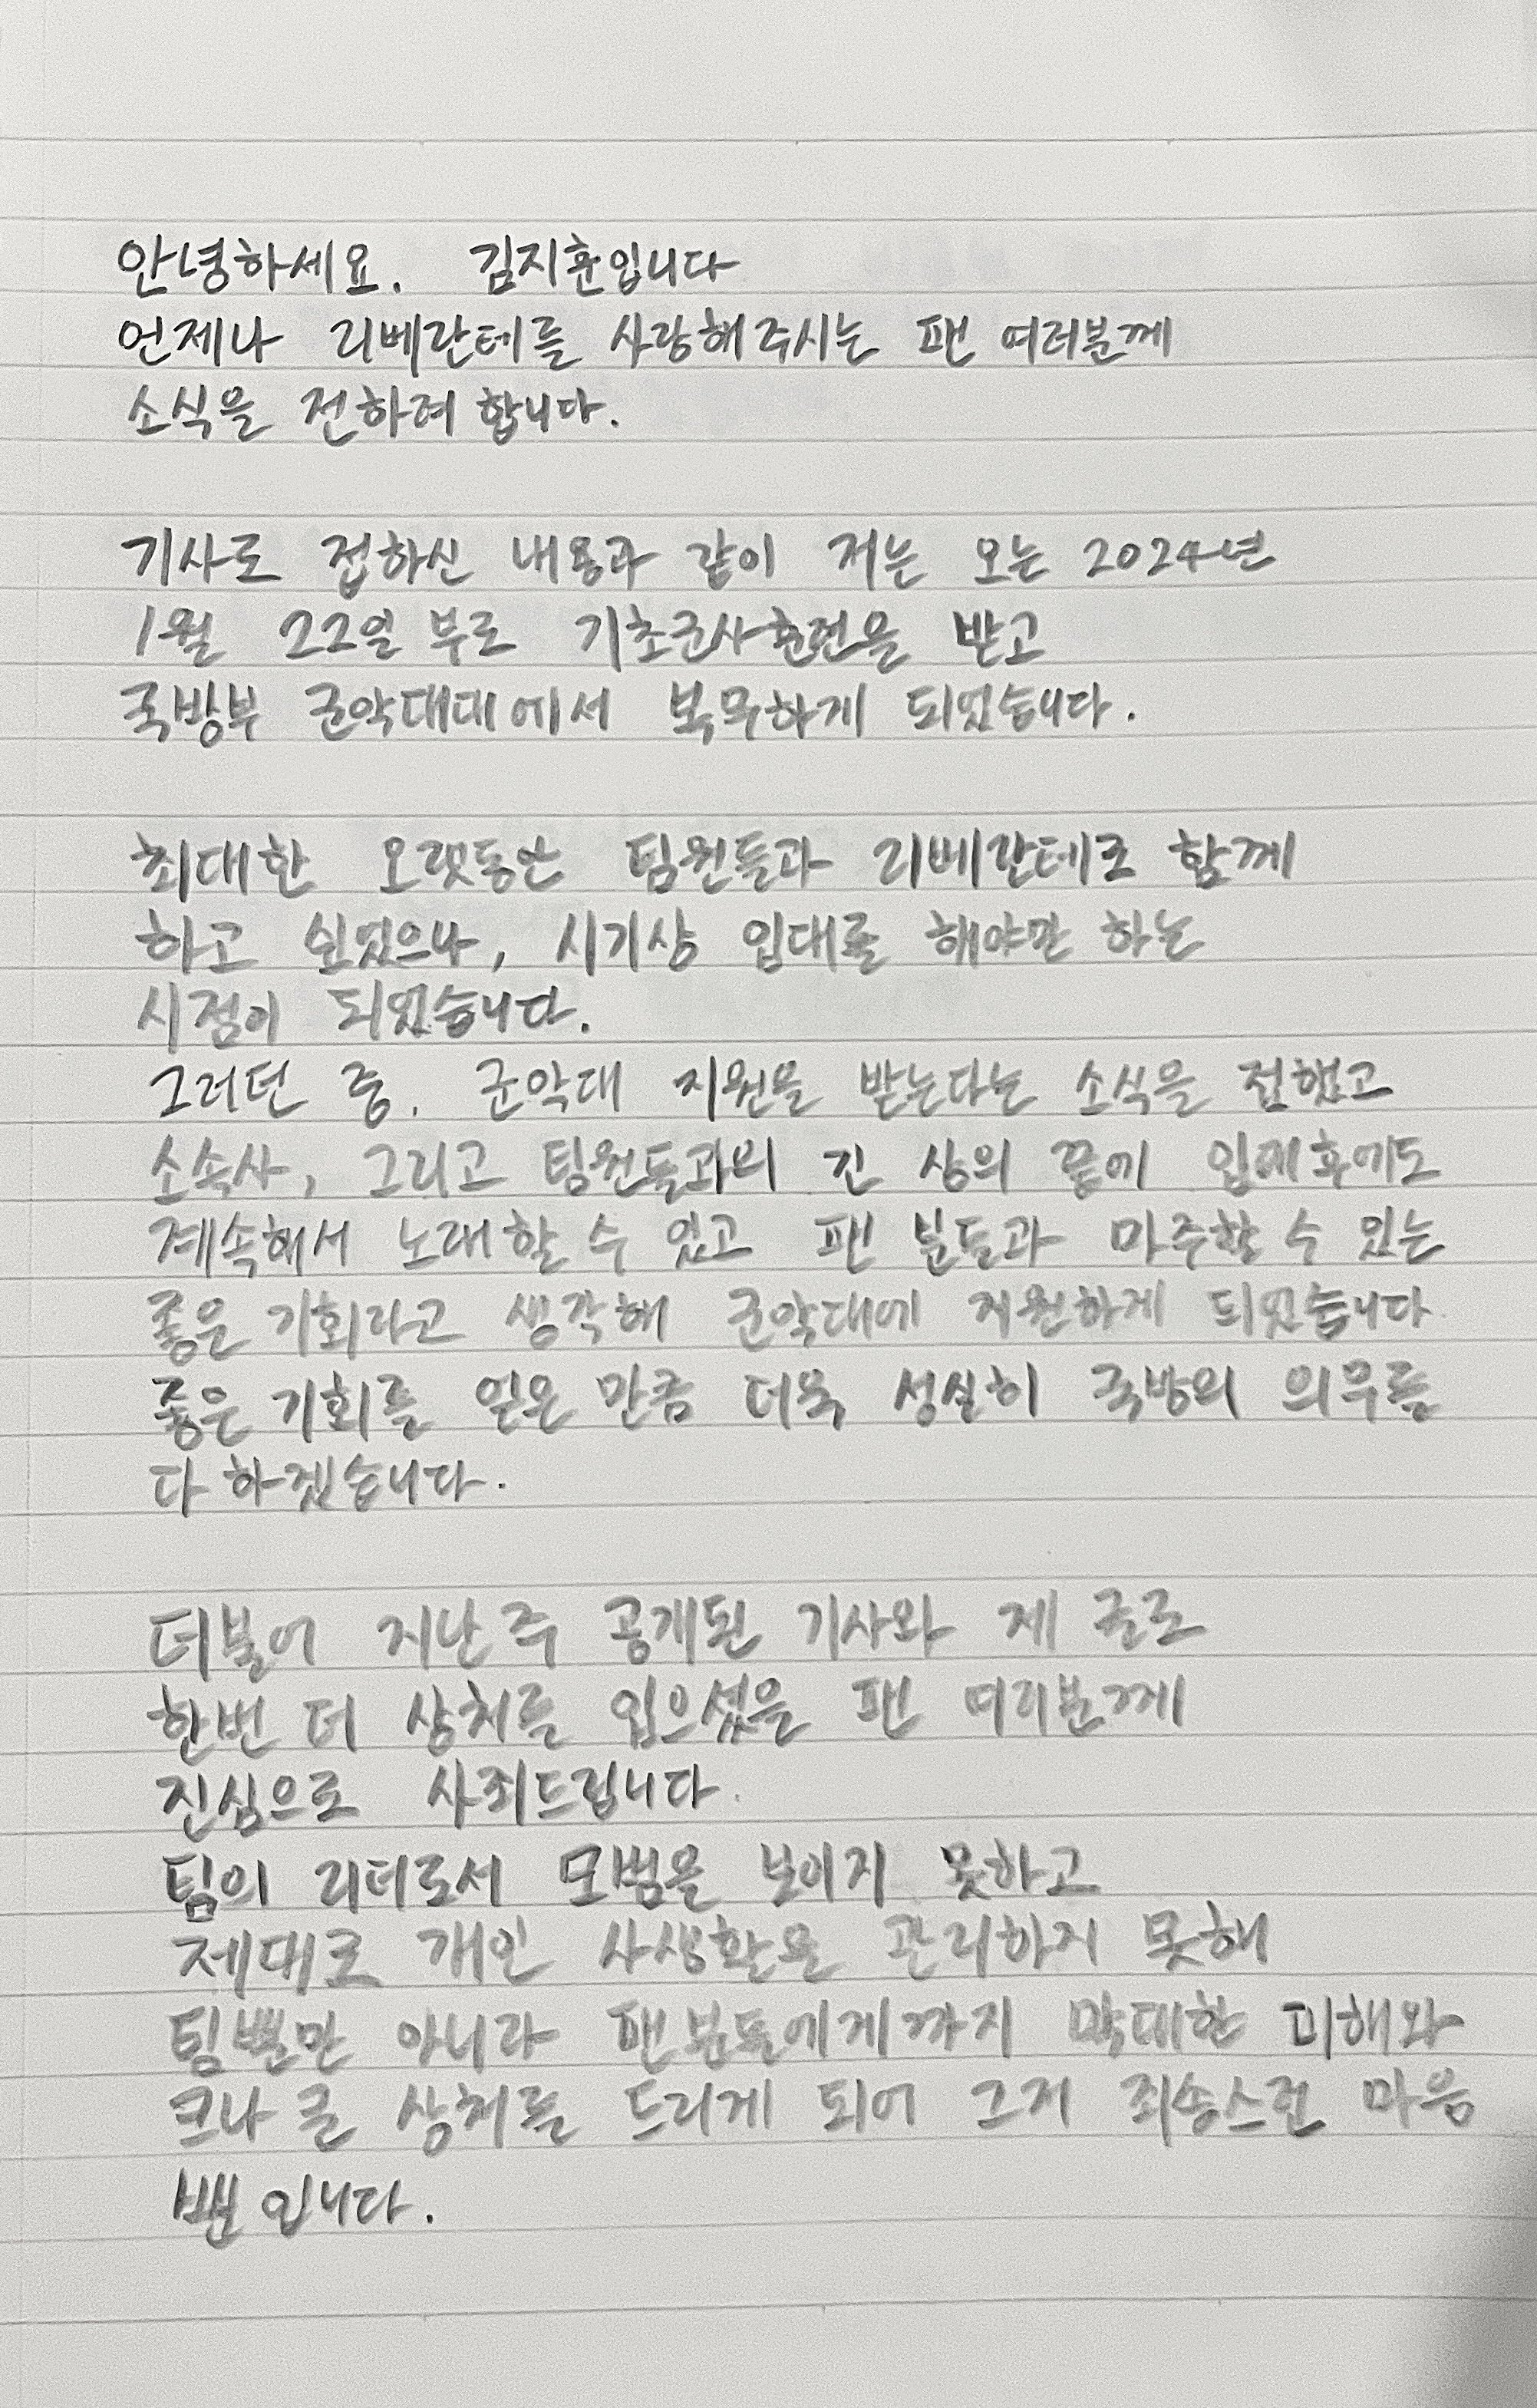 안녕하세요. 김지훈입니다
언제나 리베란테를 사랑해주시는 팬 여러분께
소식을 전하려 합니다.
기사로 접하신 내용과 같이 저는 오는 2024년
1월 22일 부로 기초군사훈련을 받고
국방부 군악대대에서 복무하게 되었습니다.
최대한 오랫동안 팀원들과 리베란테로 함께
하고 싶었으나, 시기상 입대를 해야만 하는
시점이 되었습니다.
그러던 중, 군악대 지원을 받는다는 소식을 접했고
소속사, 그리고 팀원들과의 긴 상의 끝에 입대 후에도
계속해서 노래할 수 있고 팬 분들과 마주할 수 있는
좋은 기회라고 생각해 군악대에 지원하게 되었습니다.
좋은 기회를 얻은 만큼 더욱 성실히 국방의 의무를
다 하겠습니다.
더불어 지난 주 공개된 기사와 제 글로
한번 더 상처를 입으셨을 팬 여러분께
진심으로 사죄드립니다.
팀의 리더로서 모범을 보이지 못하고
제대로 개인 사생활을 관리하지 못해
팀 뿐만 아니라 팬 분들에게까지 막대한 피해와
크나 큰 상처를 드리게 되어 그저 죄송스런 마음
뿐 입니다.